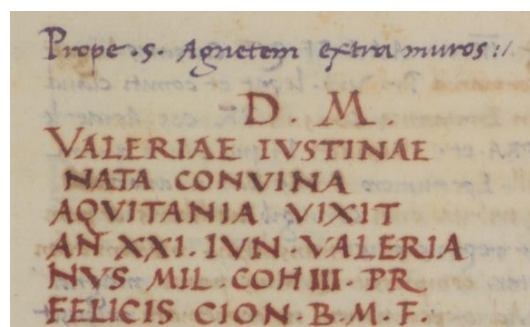 Prope .S. Agnetem extra muros:/
D M
VALERIAE IVSTINAE
NATA CONVINA
AQVITANIA VIXIT
AN XXI. IVN. VALERIA
NVS MIL COH III. PR
FELICIS CION. B. M. F.